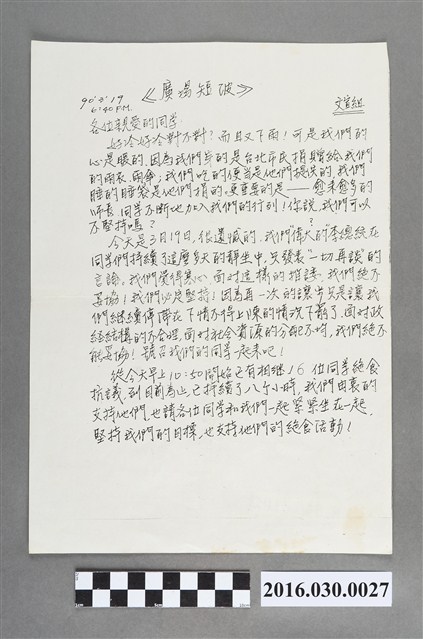 《廣場短波》
90'3'19
6:40 P.M.
文宣組
各位親愛的同學
好冷好冷對不對?而且又下雨!可是我們的
心是暖的,因為我們穿的是台北市民捐贈給我們
的雨衣、雨傘;我們吃的便當是他們提供的,我們
睡的睡袋是他們捐的。更重要的是——愈來愈多的
師長、同學不斷地加入我們的行列!你說,我們可以
不堅持嗎?
今天是3月19日,很遺憾的,我們偉大(?)的李總統在
同學們持續了這麼多天的靜坐中,只發表"一切再談"的
言論。我們覺得寒心,面對這樣的推諉,我們絕不
妥協!我們必是堅持!因為再一次的讓步只是讓我
們繼續停滯在下情不得上陳的情況下罷了,面對政
經結構的不合理,面對社會資源的分配不均,我們絕不
能妥協!號召我們的同學一起來吧!
從今天早上10:50開始已有相繼16位同學絕食
抗議,到目前為止,已持續了八个小時,我們由衷的
支持他們,也請各位同學和我們一起緊緊坐在一起,
堅持我們的目標,也支持他們的絕食活動!
1cm
5cm
10cm
2016.030.0027